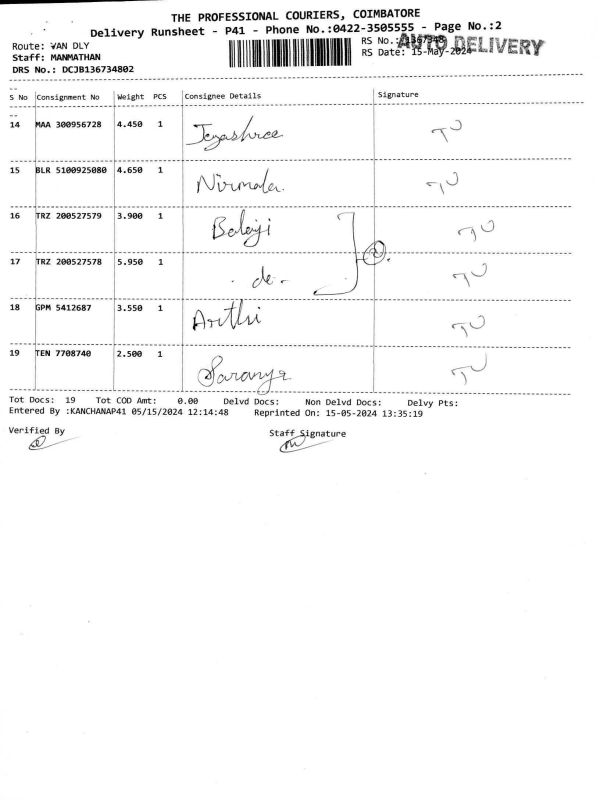 THE PROFESSIONAL COURIERS, COIMBATORE
Delivery Runsheet - P41 - Phone No.:0422-3505555 - Page No.:2
Route: VAN DLY
RS No.:
AUTO DELIVERY
Staff: MANMATHAN
RS Date: 15-May-2024
DRS No.: DCJB136734802
S No Consignment No Weight PCS Consignee Details Signature
14 MAA 300956728 4.450 1 Jeyashree
15 BLR 5100925080 4.650 1 Nirmala.
16 TRZ 200527579 3.900 1 Balaji
17 TRZ 200527578 5.950 1 - do -
18 GPM 5412687 3.550 1 Arthi
19 TEN 7708740 2.500 1 Saranya
Tot Docs: 19 Tot COD Amt: 0.00 Delvd Docs: Non Delvd Docs: Delvy Pts:
Entered By :KANCHANAP41 05/15/2024 12:14:48 Reprinted On: 15-05-2024 13:35:19
Verified By Staff Signature